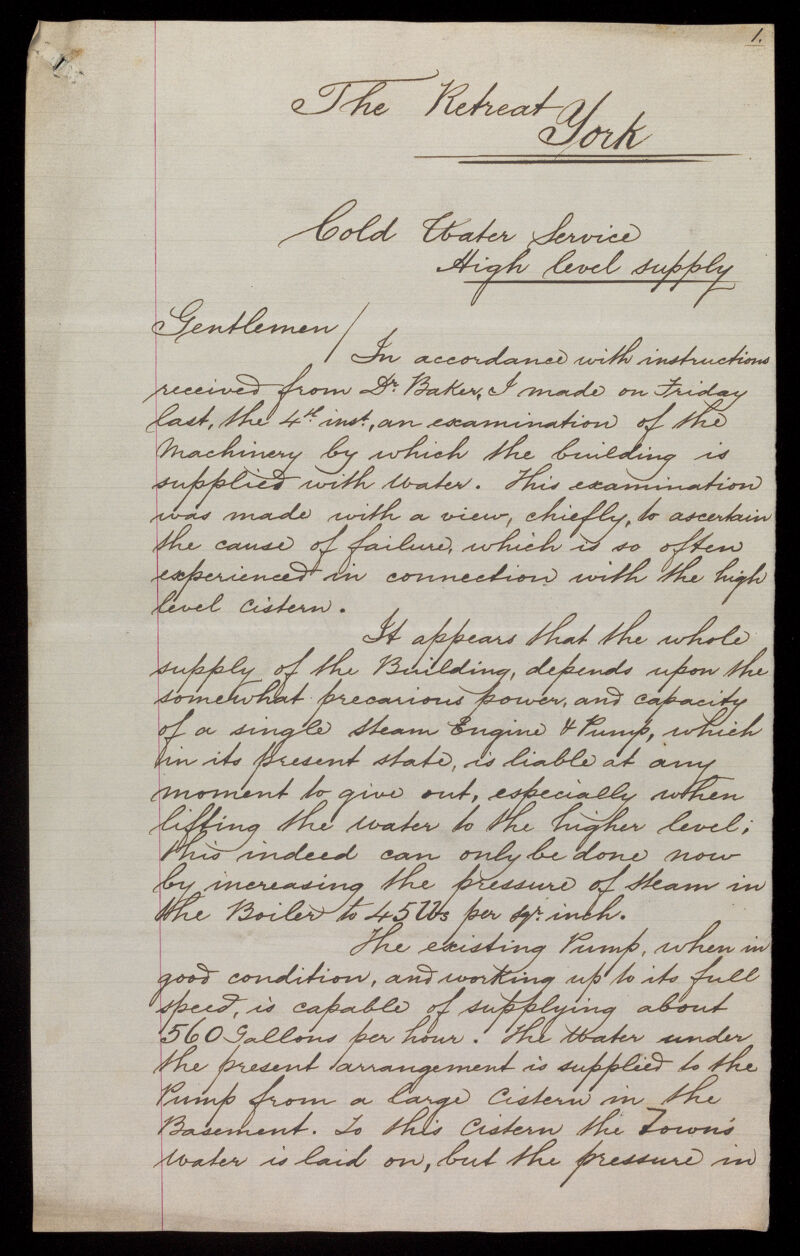 1.
The Retreat
York
Cold Water Service
High level supply
Gentlemen /
In accordance with instructions
received from Dr. Baker, I made on Friday
last, the 4th inst., an examination of the
Machinery by which the building is
supplied with water. This examination
was made with a view, chiefly, to ascertain
the cause of failure, which is so often
experienced in connection with the high
level cistern.
It appears that the whole
supply of the Building, depends upon the
somewhat precarious power, and capacity
of a single Steam Engine & Pump, which
in its present state, is liable at any
moment to give out, especially when
lifting the water to the higher level;
this indeed can only be done now
by increasing the pressure of Steam in
the Boiler to 45 lbs per sqr. inch.
The existing Pump, when in
good condition, and working up to its full
speed, is capable of supplying about
560 Gallons per hour. The Water under
the present arrangement is supplied to the
Pump from a large Cistern in the
Basement. To this Cistern the Town's
Water is laid on, but the pressure in